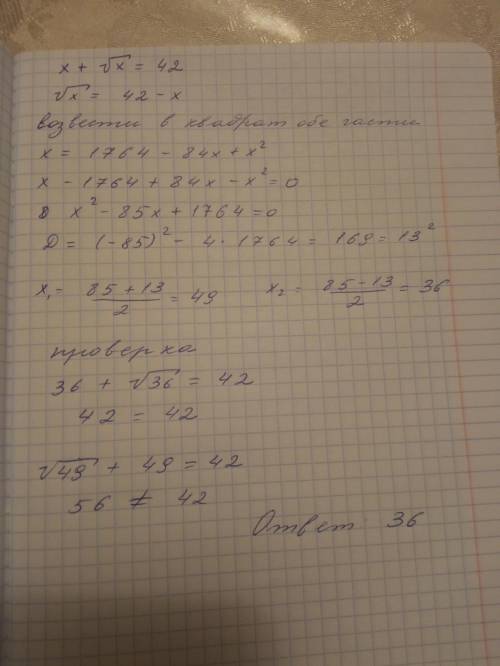 x + √x = 42
√x = 42 - x
возвести в квадрат обе части
x = 1764 - 84x + x²
x - 1764 + 84x - x² = 0
x² - 85x + 1764 = 0
D = (-85)² - 4 · 1764 = 169 = 13²
x₁ = (85 + 13)/2 = 49 x₂ = (85 - 13)/2 = 36
проверка
36 + √36 = 42
42 = 42
√49 + 49 = 42
56 ≠ 42
Ответ 36